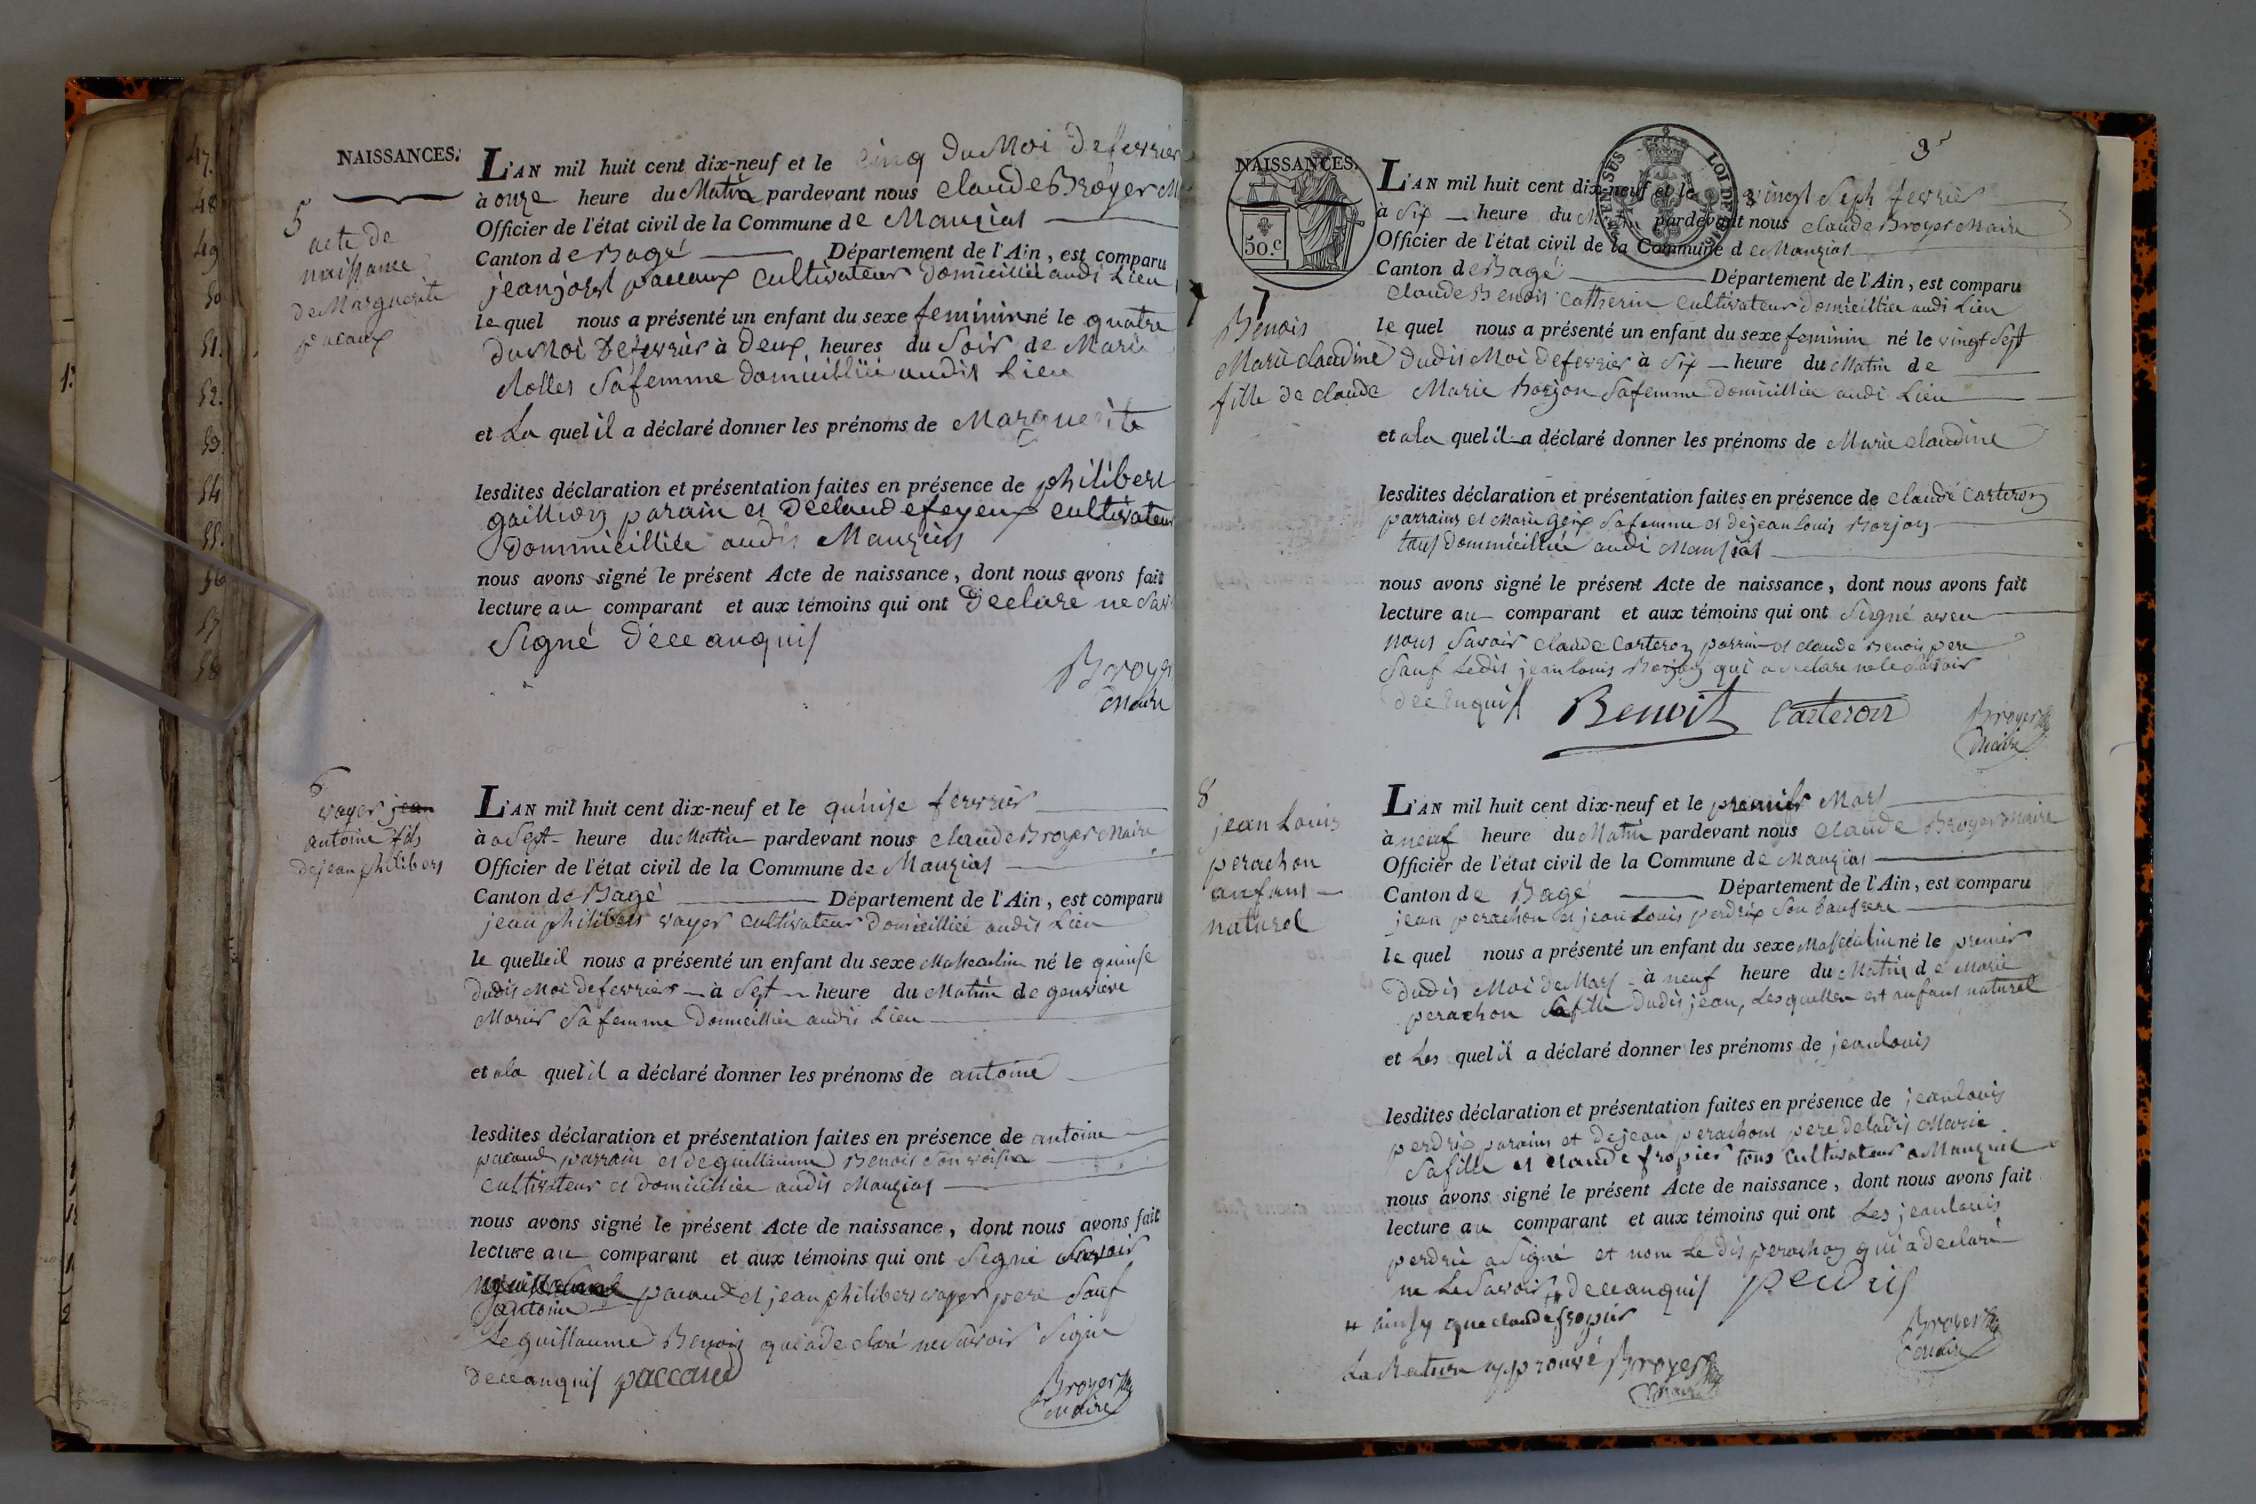 47.
48
49
50
51.
52.
53.
54
55.
56
57
58
NAISSANCES.
5
acte de
naissance
de Marguerite
pacaux
L'AN mil huit cent dix-neuf et le cinq du Moi de fevrier
à onze heure du Matin pardevant nous claude Broyer
Officier de l'état civil de la Commune de Manziat
Canton de Bagé Département de l'Ain, est comparu
jean paccaux cultivateur domicillié audi Lieu
le quel nous a présenté un enfant du sexe feminin né le quatre
du Moi de fevrier à deux heures du Soir de Marie
Sa femme domicilliéé audit Lieu
et La quel il a déclaré donner les prénoms de Marguerite
lesdites déclaration et présentation faites en présence de philibert
parain et de claude cultivateur
dommicilliée audit Manziat
nous avons signé le présent Acte de naissance, dont nous avons fait
lecture au comparant et aux témoins qui ont declaré ne
Signé
Broyer
Maire
6
voyer jean
antoine fils
de jean philibert
L'AN mil huit cent dix-neuf et le quinse fevrier
à Sept heure du Matin pardevant nous claude Broyer Maire
Officier de l'état civil de la Commune de Manziat
Canton de Bagé Département de l'Ain, est comparu
jean philibert voyer cultivateur domicillié audit Lieu
le quel il nous a présenté un enfant du sexe Masculin né le quinse
dudit Moi de fevrier à Sept heure du Matin de
Sa femme domicilliée audit Lieu
et a la quel il a déclaré donner les prénoms de antoine
lesdites déclaration et présentation faites en présence de antoine
pacaud parrain et de guillaume Benoit Son voisin
cultivateur et domicilliée audit Manziat
nous avons signé le présent Acte de naissance, dont nous avons fait
lecture au comparant et aux témoins qui ont Signé Savoir
antoine pacaud et jean philibert voyer pere Sauf
Le guillaume Benoit qui a declaré ne Savoir Signe
paccaud
Broyer
Maire
3
NAISSANCES.
50.c
7
Benois
Marie claudine
fille de claude
L'AN mil huit cent dix-neuf et le vingt Sept fevrier
à Six heure du pardevant nous claude Broyer Maire
Officier de l'état civil de la Commune de Manziat
Canton de Bagé Département de l'Ain, est comparu
claude Benois Catherin cultivateur domicillié audi Lieu
le quel nous a présenté un enfant du sexe feminin né le vingt Sept
dudis Moi de fevrier à Six heure du Matin de
Marie Borjon Sa femme domicilliée audi Lieu
et a la quel il a déclaré donner les prénoms de Marie claudine
lesdites déclaration et présentation faites en présence de claude Carteron
parrains et Marie Sa femme et de jean Louis Borjon
tous dommicilliée audi Manziat
nous avons signé le présent Acte de naissance, dont nous avons fait
lecture au comparant et aux témoins qui ont Signé avec
nous Savoir claude Carteron parrin et claude Benois pere
Sauf Ledis jean Louis Borjon qui a declare ne le Savoir
Benoit Carteron Broyer
Maire
8
jean Louis
perachon
anfans
naturel
L'AN mil huit cent dix-neuf et le premier Mars
à neuf heure du Matin pardevant nous claude Broyer Maire
Officier de l'état civil de la Commune de Manziat
Canton de Bagé Département de l'Ain, est comparu
jean perachon et jean Louis perdrix Son baufrere
le quel nous a présenté un enfant du sexe Masculin né le premier
dudis Moi de Mars à neuf heure du Matin de Marie
perachon Sa fille dudis jean, est anfant naturel
et Les quel il a déclaré donner les prénoms de jean louis
lesdites déclaration et présentation faites en présence de jean louis
perdrix parains et de jean perachont pere de ladis Marie
Sa fille et claude fropier tous cultivateur a Manziat
nous avons signé le présent Acte de naissance, dont nous avons fait
lecture au comparant et aux témoins qui ont Les jean louis
perdrix a Signé et nom Le dis perachon qui a declaré
ne Le Savoir perdris
ainsy que claude fropier
La Rature approuvé Broyer
Maire
Broyer
Maire